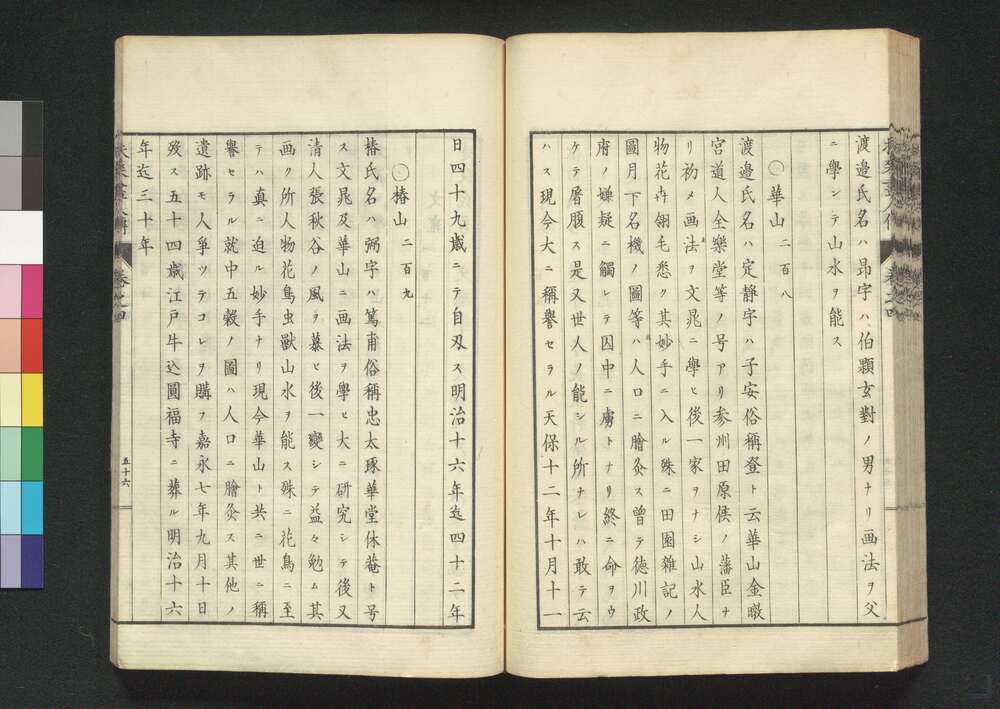 渡邉氏名ハ昂字ハ伯顆玄對ノ男ナリ画法ヲ父
ニ學ンテ山水ヲ能ス
〇華山 二百八
渡邉氏名ハ定靜字ハ子安俗稱登ト云華山金暾
宮道人全樂堂等ノ号アリ参州田原侯ノ藩臣ナ
リ初メ画法ヲ文晁ニ學ヒ後一家ヲナシ山水人
物花卉翎毛悉ク其妙手ニ入ル殊ニ田園雜記ノ
圖月下名機ノ圖等ハ人口ニ膾灸ス曽テ徳川政
府ノ嫌疑ニ觸レテ囚中ニ虜トナリ終ニ命ヲウ
ケテ屠腹ス是又世人ノ能シル所ナレハ敢テ云
ハス現今大ニ稱譽セラル天保十二年十月十一
日四十九歳ニテ自刄ス明治十六年迄四十二年
〇椿山 二百九
椿氏名ハ弼字ハ篤甫俗稱忠太琢華堂休菴ト号
ス文晁及華山ニ画法ヲ學ヒ大ニ研究シテ後又
清人張秋谷ノ風ヲ慕ヒ後一變シテ益々勉ム其
画ク所人物花鳥虫獸山水ヲ能ス殊ニ花鳥ニ至
テハ真ニ迫ル妙手ナリ現今華山ト共ニ世ニ稱
譽セラル就中五穀ノ圖ハ人口ニ膾灸ス其他ノ
遺跡モ人爭ツテコレヲ購フ嘉永七年九月十日
歿ス五十四歳江戸牛込圓福寺ニ葬ル明治十六
年迄三十年
卷之四
五十六